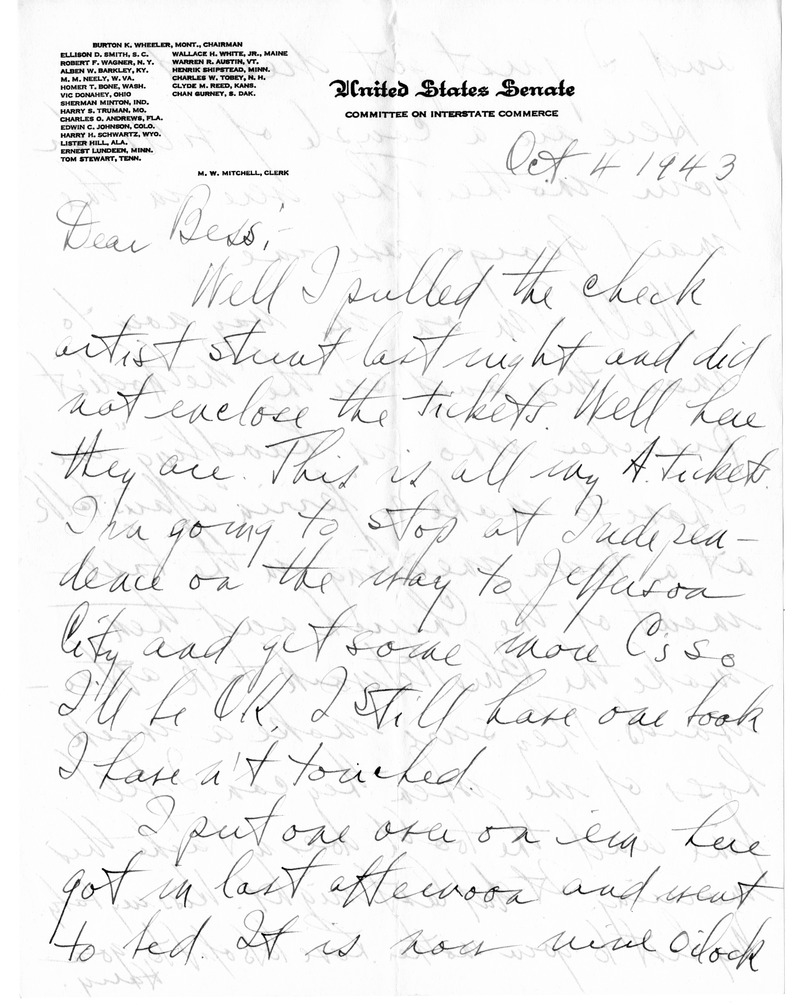 BURTON K. WHEELER, MONT., CHAIRMAN
ELLISON D. SMITH, S. C.
ROBERT F. WAGNER, N. Y.
ALBEN W. BARKLEY, KY.
M. M. NEELY, W. VA.
HOMER T. BONE, WASH.
VIC DONAHEY, OHIO
SHERMAN MINTON, IND.
HARRY S. TRUMAN, MO.
CHARLES O. ANDREWS, FLA.
EDWIN C. JOHNSON, COLO.
HARRY H. SCHWARTZ, WYO.
LISTER HILL, ALA.
ERNEST LUNDEEN, MINN.
TOM STEWART, TENN.
WALLACE H. WHITE, JR., MAINE
WARREN R. AUSTIN, VT.
HENRIK SHIPSTEAD, MINN.
CHARLES W. TOBEY, N. H.
CLYDE M. REED, KANS.
CHAN GURNEY, S. DAK.
M. W. MITCHELL, CLERK
United States Senate
COMMITTEE ON INTERSTATE COMMERCE
Oct. 4 1943
Dear Bess;-
Well I pulled the check
artist stunt last night and did
not enclose the tickets. Well here
they are. This is all my A. tickets.
I'm going to stop at Indepen-
dence on the way to Jefferson
City and get some more C's so
I'll be OK, I still have one book
I haven't touched.
I put one over on em here
got in last afternoon and went
to bed. It is now nine O'clock